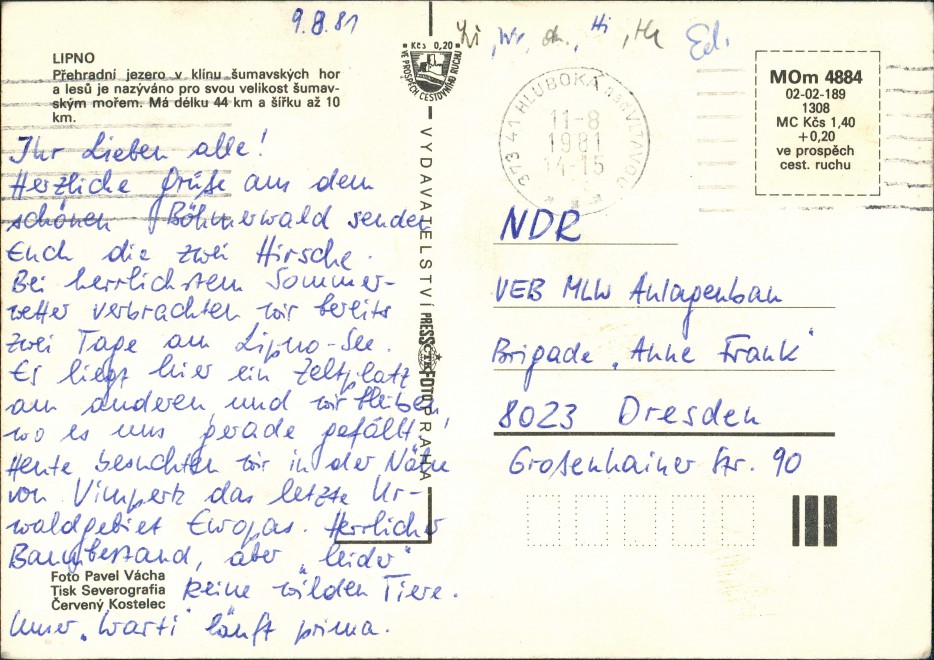 9.8.81
Wr, Hi, Ed.
LIPNO
Přehradní jezero v klínu šumavských hor
a lesů je nazýváno pro svou velikost šumav-
ským mořem. Má délku 44 km a šířku až 10
km.
Ihr Lieben alle!
Herzliche Grüße aus dem
schönen Böhmerwald senden
Euch die zwei Hirsche.
Bei herrlichstem Sommer-
wetter verbrachten wir bereits
zwei Tage am Lipno-See.
Es liegt hier ein Zeltplatz
am anderen und wir bleiben
wo es uns gerade gefällt!
Heute besuchten wir in der Nähe
von Vimperk das letzte Ur-
waldgebiet Europas. Herrlicher
Baumbestand, aber "leider"
keine wilden Tiere.
Unser "Warti" läuft prima.
Foto Pavel Vácha
Tisk Severografia
Červený Kostelec
Kčs 0,20
VE PROSPĚCH CESTOVNÍHO RUCHU
VYDAVATELSTVÍ PRESSFOTO PRAHA
ČTK
373 41 HLUBOKÁ NAD VLTAVOU
11-8
1981
14-15
MOm 4884
02-02-189
1308
MC Kčs 1,40
+0,20
ve prospěch
cest. ruchu
NDR
VEB MLW Anlagenbau
Brigade "Anne Frank"
8023 Dresden
Großenhainer Str. 90